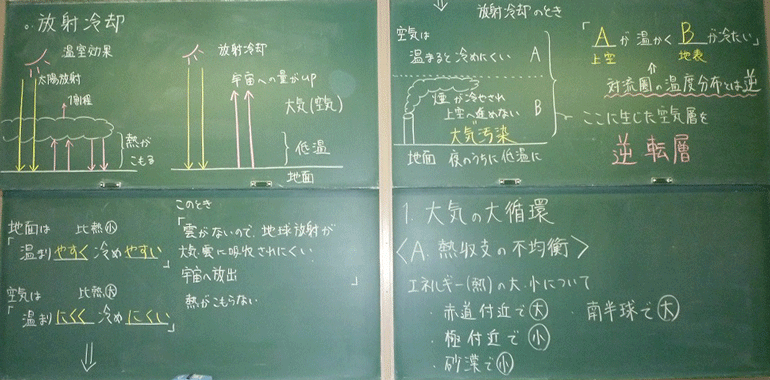 ○. 放射冷却
温室効果
太陽放射
1割程
熱が
こもる
放射冷却
宇宙への量がup
大気(空気)
低温
地面
地面は 比熱小
「温まりやすく 冷めやすい」
空気は 比熱大
「温まりにくく 冷めにくい」
⇓
このとき
「雲がないので、地球放射が
大気、雲に吸収されにくい
宇宙へ放出
熱がこもらない」
⇓ 放射冷却のとき
空気は
温まると冷めにくい A
煙が冷やされ
上空へ進めない B
大気汚染
地面 夜のうちに低温に
「Aが温かくBが冷たい」
上空 地表
⇑
対流圏の温度分布とは逆
ここに生じた空気層を
逆転層
1. 大気の大循環
〈A. 熱収支の不均衡〉
エネルギー(熱)の大小について
・赤道付近で大 ・南半球で大
・極付近で小
・砂漠で小